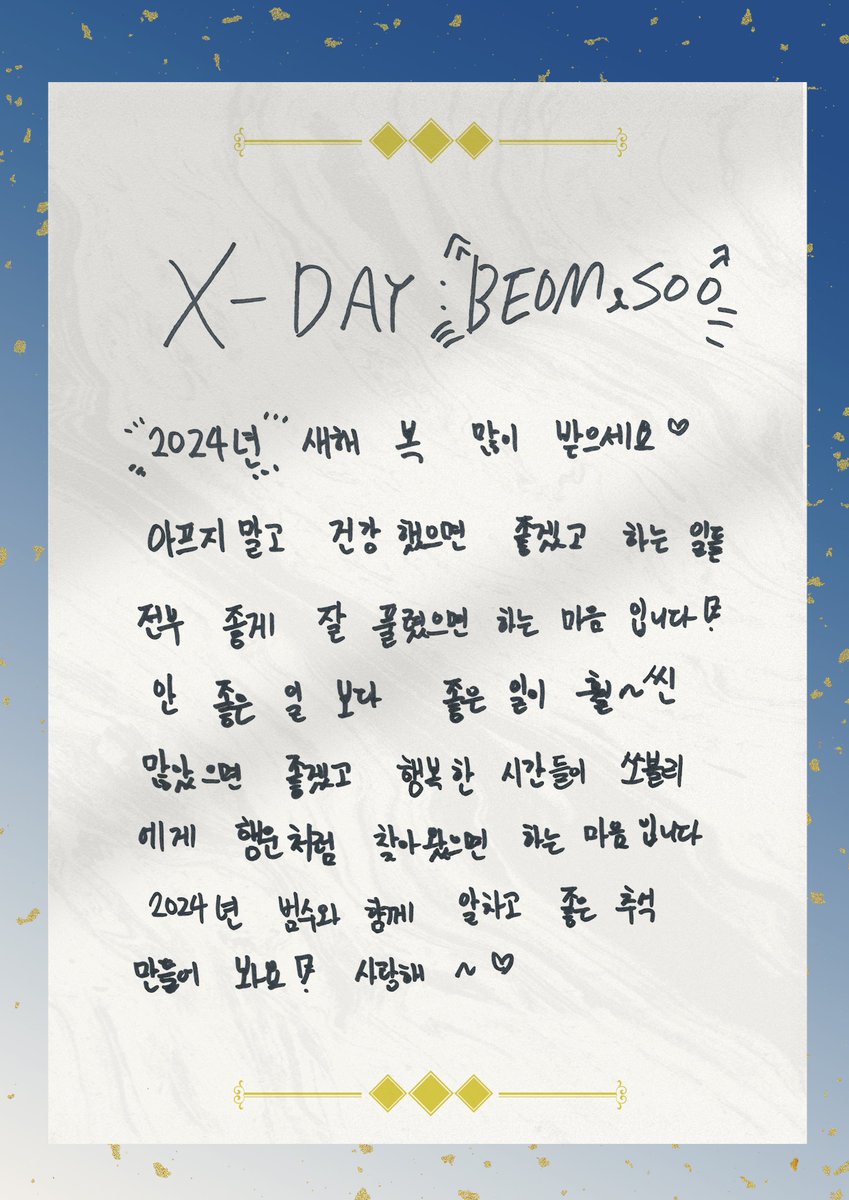 X-DAY : BEOM SOO
2024년 새해 복 많이 받으세요♡
아프지 말고 건강 했으면 좋겠고 하는 일들
전부 좋게 잘 풀렸으면 하는 마음 입니다!
안 좋은 일 보다 좋은 일이 훨~씬
많았으면 좋겠고 행복한 시간들이 쏘블리
에게 행운처럼 찾아왔으면 하는 마음입니다
2024년 범수와 함께 알차고 좋은 추억
만들어 봐요! 사랑해 ~♡